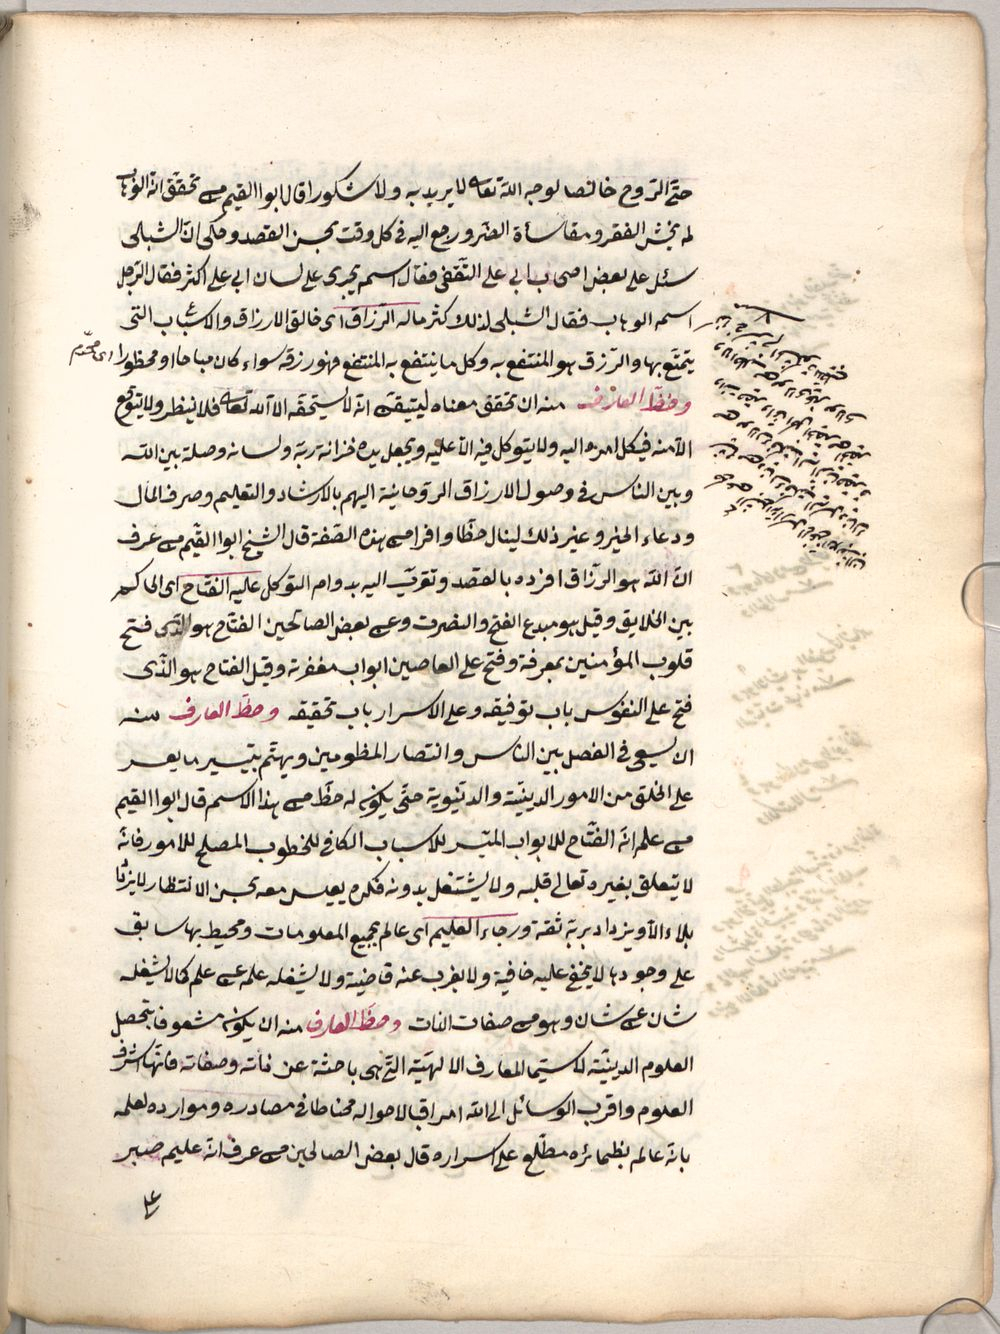 حتى الروح خالصا لوجه الله تعالى لا يريد به ولا شكورا قال ابوا القيم من تحقق انه الوهاب
لم يخش الفقر ومقاساة الضر ورجع اليه في كل وقت بحسن القصد وحكى ان الشبلى
سئل على بعض اصحاب ابي على الثقفى فقال اسم يجرى على لسان ابى على اكثر فقال الرجل
اسمه الوهاب فقال الشبلى لذلك كثر ماله الرزاق اى خالق الارزاق والاسباب التى
يتمتع بها والرزق هو المنتفع به وكل ما ينتفع به المنتفع فهو رزقه سواء كان مباحا او محظورا
اى محرم
وحظ العارف منه ان تحقق معناه ليتيقن انه لا يستحقه الا الله تعالى فلا ينظر ولا يتوقع
الا منه فيكل امره اليه ولا يتوكل فيه الا عليه ويجعل يده خزانة ربه ولسانه وصلة بين الله
وبين الناس فى وصول الارزاق الروحانية اليهم بالارشاد والتعليم وصرف المال
ودعاء الخير وغير ذلك لينال حظا وافرا من هذه الصفة قال الشيخ ابوا القيم من عرف
ان الله هو الرزاق افرده بالقصد وتقرب اليه بدوام التوكل عليه الفتاح اى الحاكم
بين الخلايق وقيل هو مبدع الفتح والنصرت وعن بعض الصالحين الفتاح هو الذى فتح
قلوب المؤمنين بمعرفة وفتح على العاصين ابواب مغفرته وقيل الفتاح هو الذى
فتح على النفوس باب توفيقه وعلى الاسرار باب تحقيقه وحظ العارف منه
ان يسعى فى الفصل بين الناس وانتصار المظلومين ويهتم بتيسير ما يعسر
على الخلق من الامور الدينية والدنيوية حتى يكون له حظ من هذا الاسم قال ابوا القيم
من علم انه الفتاح للابواب الميسر للاسباب الكافى للخطوب المصلح للامور فانه
لا يتعلق بغيره تعالى قلبه ولا يشتغل بدونه فكره يعيش معه بحسن الانتظار لا يزداد
بلاء الا ويزداد بربه ثقة ورجاء العليم اى عالم بجميع المعلومات ومحيط بها سابق
على وجودها لا يخفى عليه خافية ولا يعزب عنه قاضية ولا يشغله علم عن علم كما لا يشغله
شان عن شان وهو من صفات الذات وحظ العارف منه ان يكون مشعوفا بتحصل
العلوم الدينية لا سيما المعارف الالهية التى هى باحثة عن ذاته وصفاته فانها اشرف
العلوم واقرب الوسائل الى الله امراقبا لاحواله محتاطا فى مصادره وموارده لعلمه
بانه عالم بظمائره مطلع على اسراره قال بعض الصالحين من عرف انه عليم صبر
على